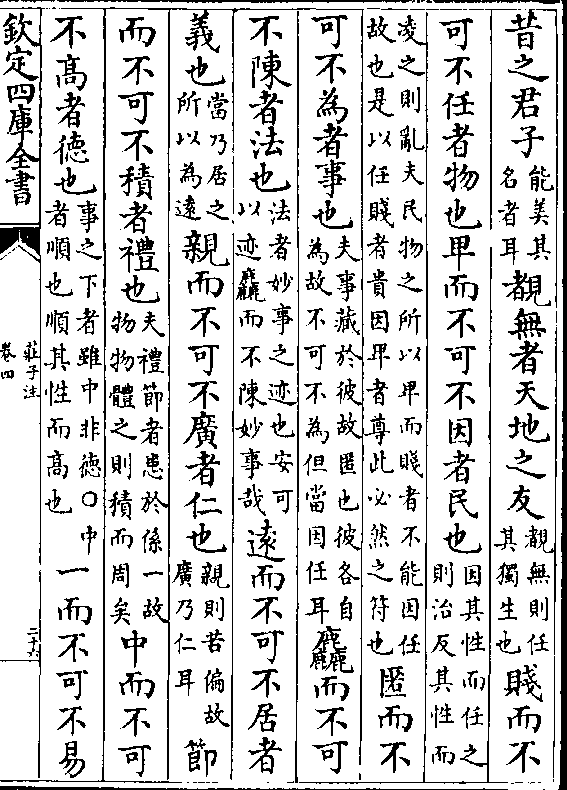 昔之君子能美其名者耳覩無者天地之友覩無則任其獨生也賤而不
可不任者物也卑而不可不因者民也因其性而任之則治反其性而
凌之則亂夫民物之所以卑而賤者不能因任故也是以任賤者貴因卑者尊此必然之符也匿而不
可不為者事也夫事藏於彼故匿也彼各自為故不可不為但當因任耳麤而不可
不陳者法也法者妙事之迹也安可以迹麤而不陳妙事哉遠而不可不居者
義也當乃居之所以為遠親而不可不廣者仁也親則苦偏故廣乃仁耳節
而不可不積者禮也夫禮節者患於係一故物物體之則積而周矣中而不可
不髙者德也事之下者雖中非德〇中者順也順其性而髙也一而不可不易
欽定四庫全書
莊子注
卷四
二十六